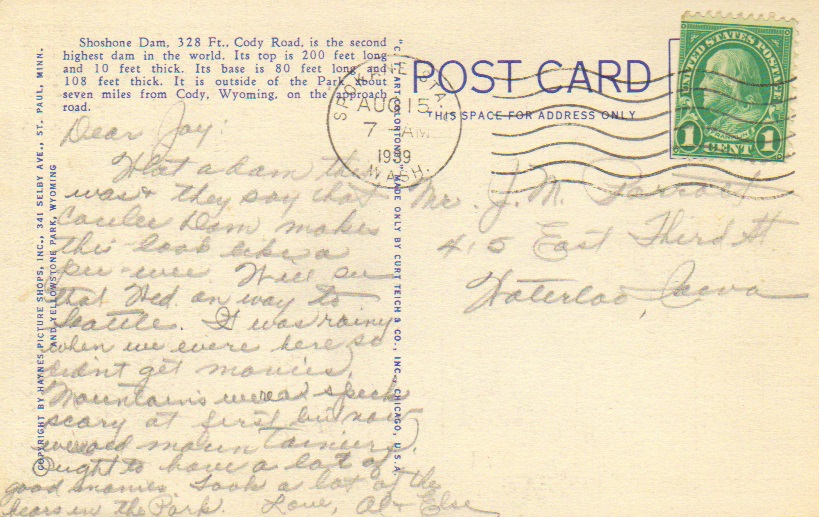 Shoshone Dam, 328 Ft., Cody Road, is the second
highest dam in the world. Its top is 200 feet long
and 10 feet thick. Its base is 80 feet long and
108 feet thick. It is outside of the Park about
seven miles from Cody, Wyoming, on the approach
road.
COPYRIGHT BY HAYNES PICTURE SHOPS, INC., 341 SELBY AVE., ST. PAUL, MINN.
AND YELLOWSTONE PARK, WYOMING
"C. T. ART-COLORTONE" MADE ONLY BY CURT TEICH & CO., INC., CHICAGO, U.S.A.
POST CARD
THIS SPACE FOR ADDRESS ONLY
SPOKANE STA.
AUG 15
7 AM
1939
WASH.
UNITED STATES POSTAGE
FRANKLIN
1 CENT 1
Dear Jay:
What a dam this
was & they say that
Coulee Dam makes
this look like a
pee-wee. Will see
that Wed. on way to
Seattle. It was rainy
when we were here so
didn't get movies.
Mountains
scary at first but now
we're old
Ought to have a lot of
good movies. Took a lot of the
bears in the Park. Love, Al & Else
Mr. J. M.
415 East Third St
Waterloo, Iowa